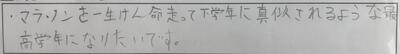 ・マラソンを一生けん命走って下学年に真似されるような最
高学年になりたいです。